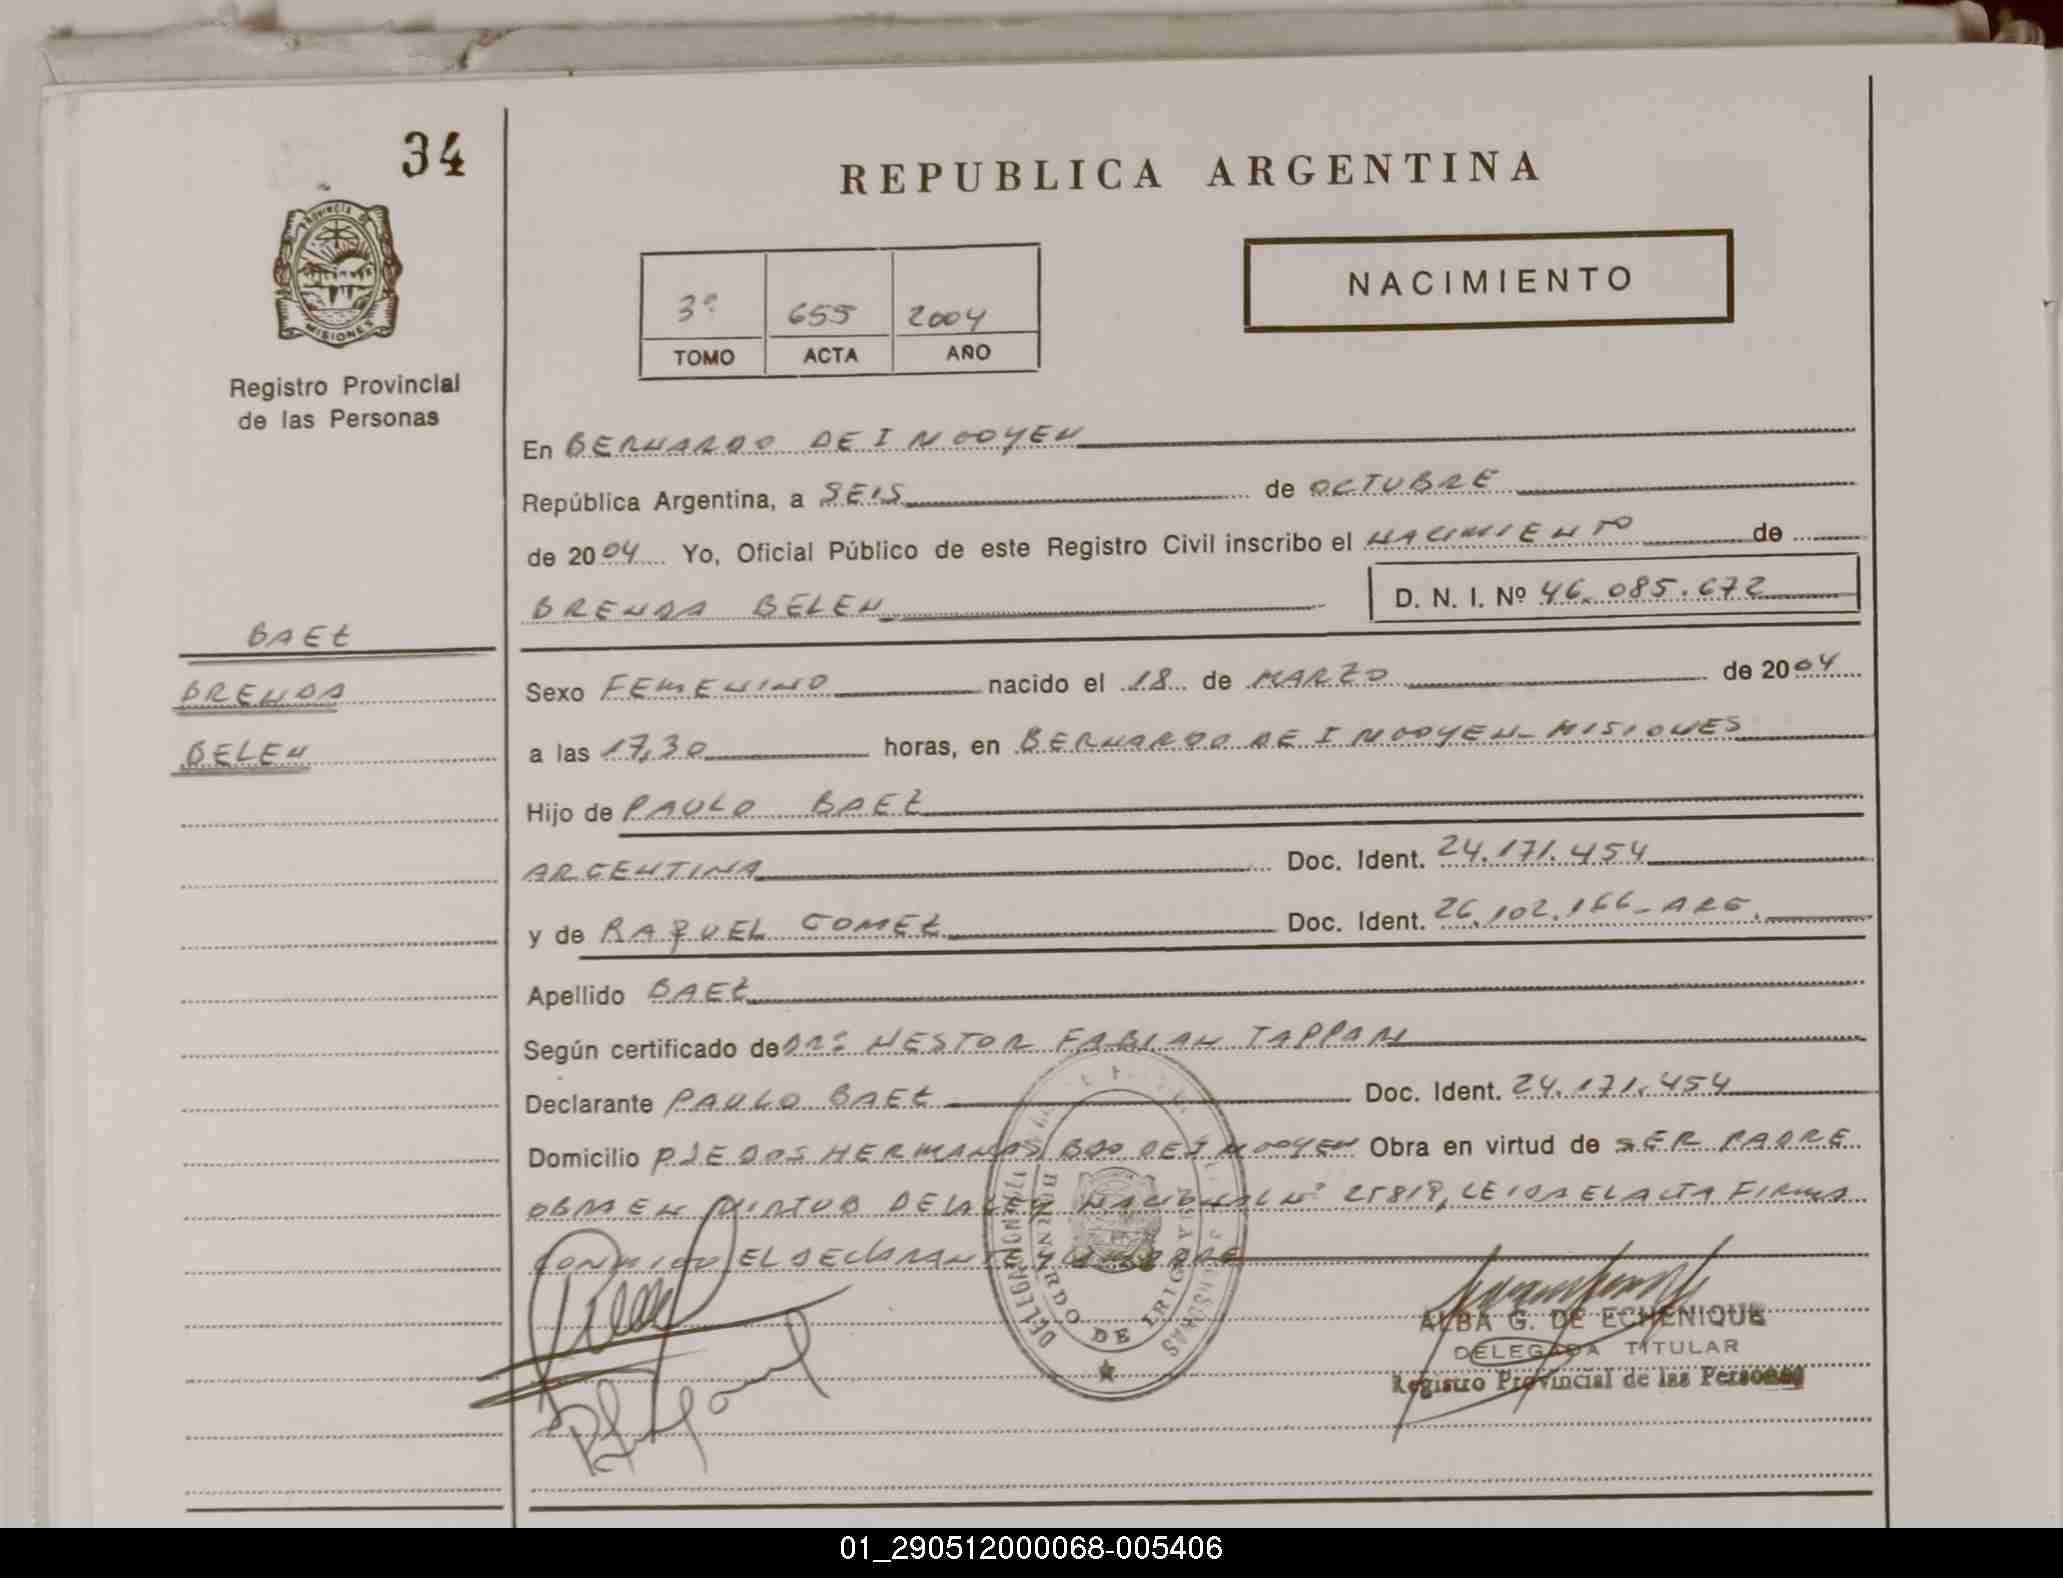 34
REPUBLICA ARGENTINA
PROVINCIA DE
MISIONES
Registro Provincial
de las Personas
3º 655 2004
TOMO ACTA AÑO
NACIMIENTO
En BERNARDO DE IRIGOYEN
República Argentina, a SEIS de OCTUBRE
de 2004 Yo, Oficial Público de este Registro Civil inscribo el NACIMIENTO de
BRENDA BELEN D. N. I. Nº 46.085.672
BAEZ
BRENDA
BELEN
Sexo FEMENINO nacido el 18 de MARZO de 2004
a las 17,30 horas, en BERNARDO DE IRIGOYEN - MISIONES
Hijo de PAULO BAEZ
ARGENTINA Doc. Ident. 24.171.454
y de RAQUEL GOMEZ Doc. Ident. 26.102.166 - ARG.
Apellido BAEZ
Según certificado de DR: NESTOR FABIAN TAPPARI
Declarante PAULO BAEZ Doc. Ident. 24.171.454
Domicilio PJE DOS HERMANAS BDO DE IRIGOYEN Obra en virtud de SER PADRE
OBRA EN VIRTUD DE LA LEY NACIONAL Nº 25818, LEIDA EL ACTA FIRMA
CONMIGO EL DECLARANTE Y LA MADRE
BERNARDO DE IRIGOYEN
ALBA G. DE ECHENIQUE
DELEGADA TITULAR
Registro Provincial de las Personas
01_290512000068-005406